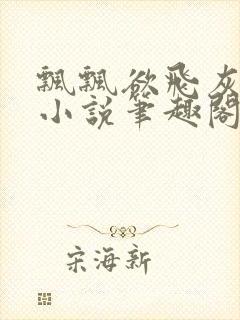 飄飄欲飛灰
小說筆趣閣
宋海新